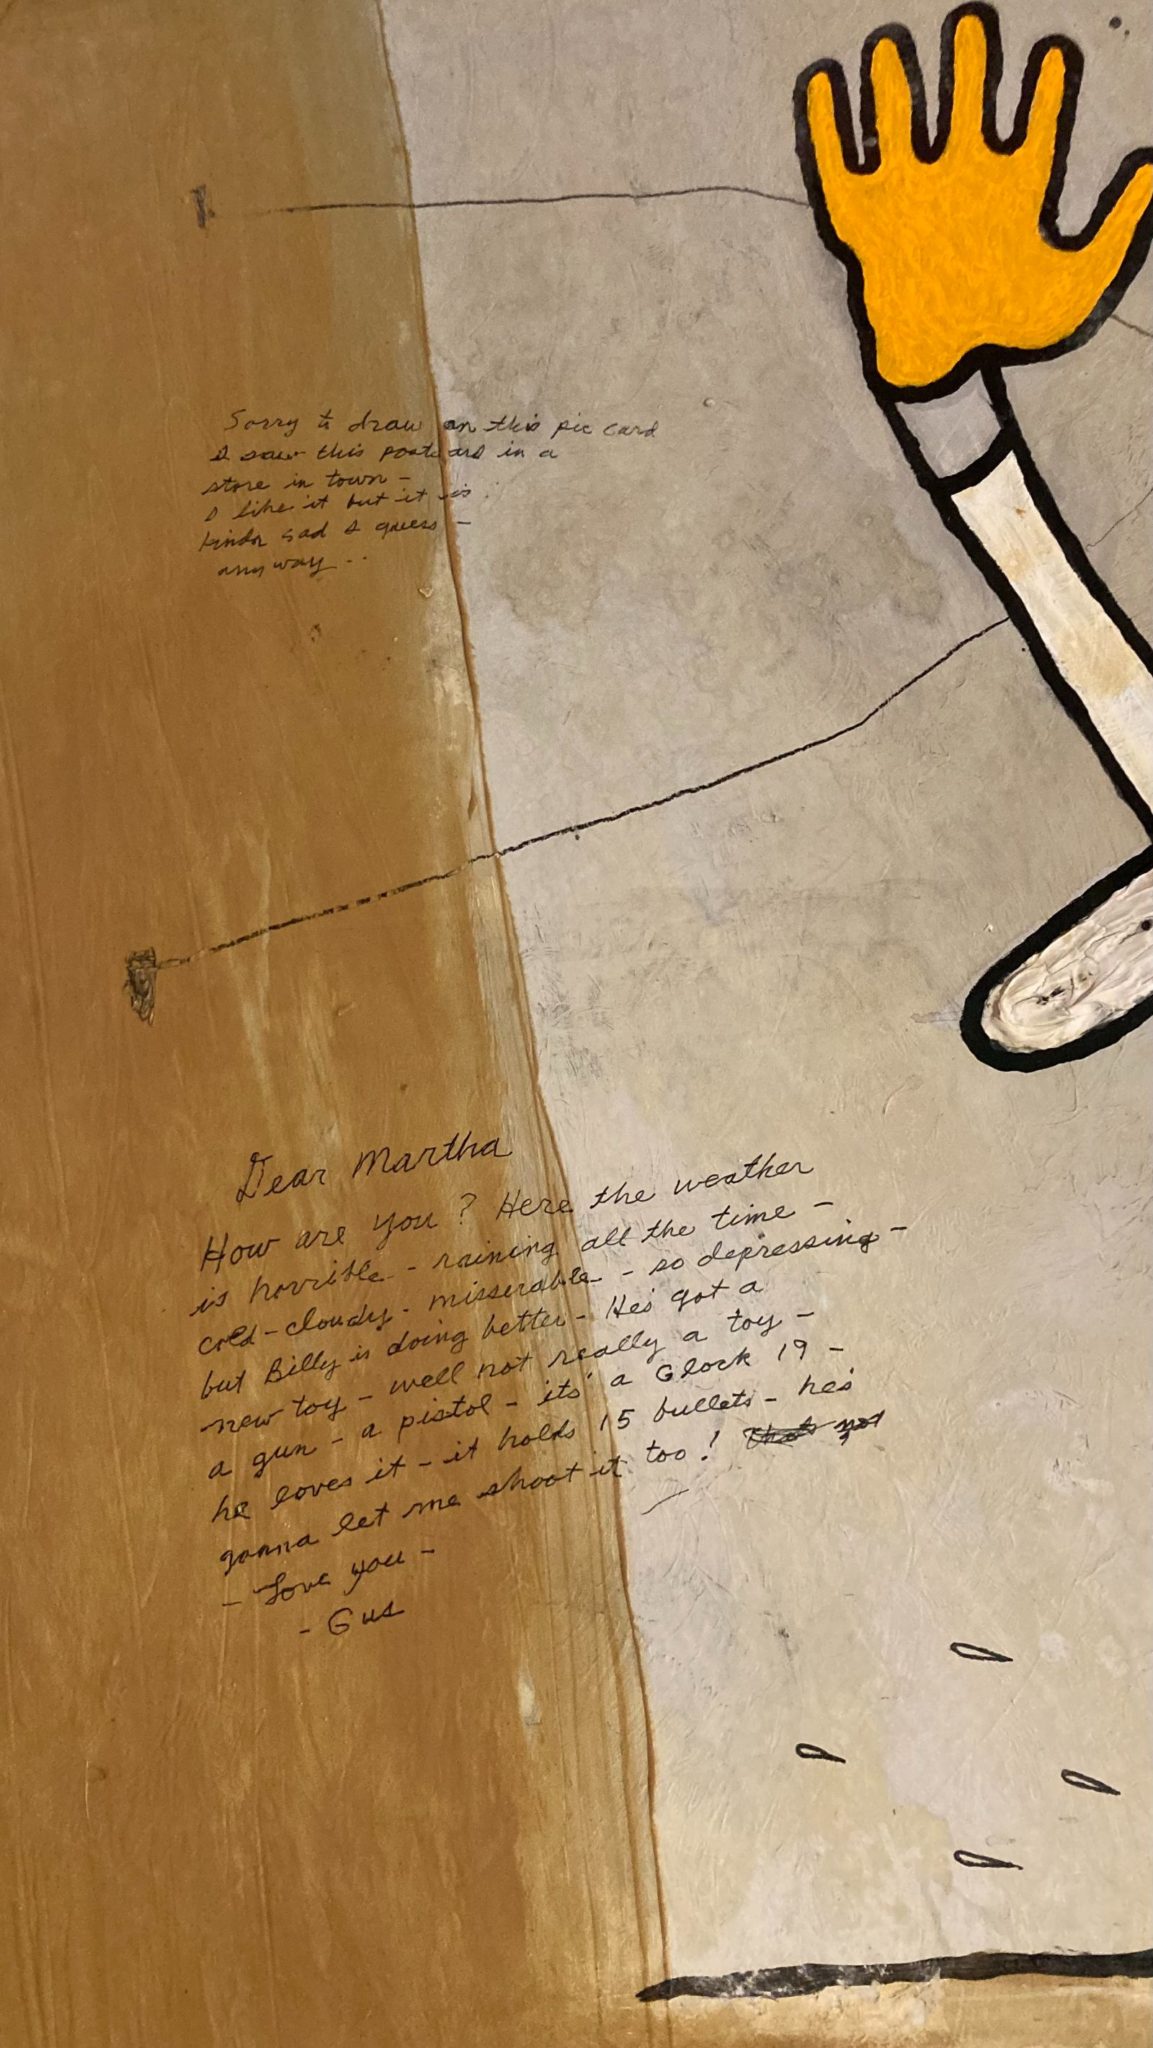 Sorry to draw on this pic card
I saw this postcard in a
store in town –
I like it but it is
kinda sad I guess –
anyway . .
Dear Martha
How are you? Here the weather
is horrible – raining all the time –
cold – cloudy – misserable – so depressing –
but Billy is doing better – He's got a
new toy – well not really a toy –
a gun – a pistol – its a Glock 19 –
he loves it – it holds 15 bullets – he's
gonna let me shoot it too! Thats not
– Love you –
– Gus